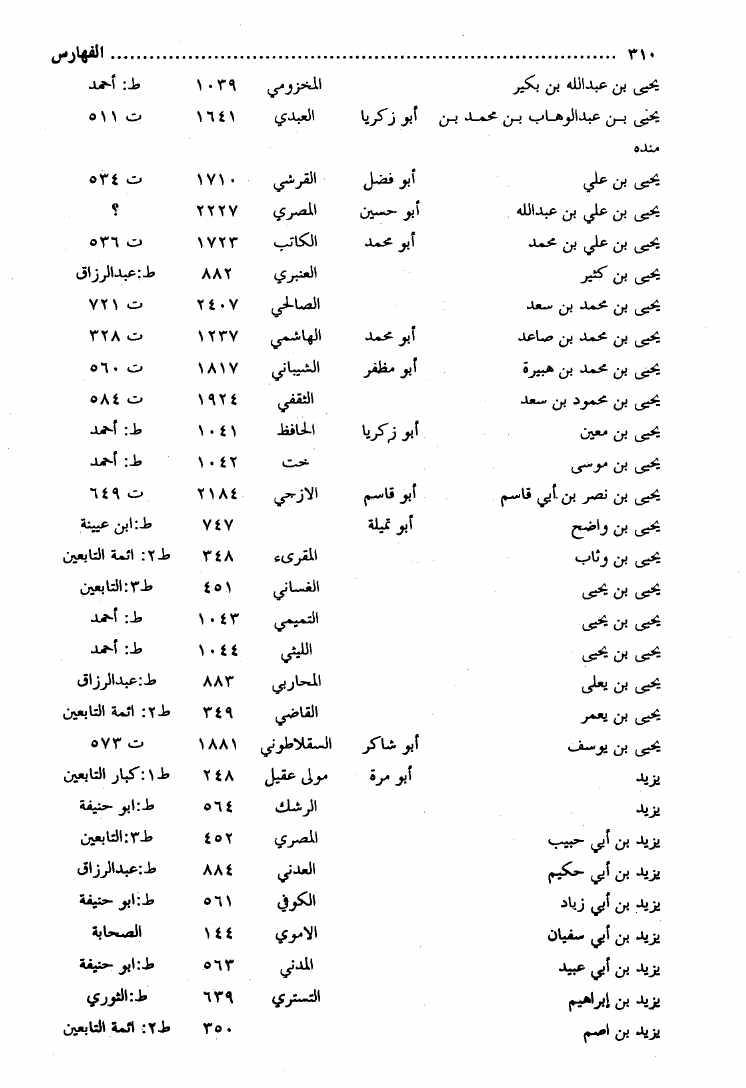 ٣١٠ ........................................................................ الفهارس
يحيى بن عبدالله بن بكير المخزومي ١٠٣٩ ط: أحمد
يحيى بن عبدالوهاب بن محمد بن أبو زكريا العبدي ١٦٤١ ت ٥١١
منده
يحيى بن علي أبو فضل القرشي ١٧١٠ ت ٥٣٤
يحيى بن علي بن عبدالله أبو حسين المصري ٢٢٢٧ ؟
يحيى بن علي بن محمد أبو محمد الكاتب ١٧٢٣ ت ٥٣٦
يحيى بن كثير العنبري ٨٨٢ ط:عبدالرزاق
يحيى بن محمد بن سعد الصالحي ٢٤٠٧ ت ٧٢١
يحيى بن محمد بن صاعد أبو محمد الهاشمي ١٢٣٧ ت ٣٢٨
يحيى بن محمد بن هبيرة أبو مظفر الشيباني ١٨١٧ ت ٥٦٠
يحيى بن محمود بن سعد الثقفي ١٩٢٤ ت ٥٨٤
يحيى بن معين أبو زكريا الحافظ ١٠٤١ ط: أحمد
يحيى بن موسى خت ١٠٤٢ ط: أحمد
يحيى بن نصر بن أبي قاسم أبو قاسم الازجي ٢١٨٤ ت ٦٤٩
يحيى بن واضح أبو تميلة ٧٤٧ ط:ابن عيينة
يحيى بن وثاب المقرىء ٣٤٨ ط٢: ائمة التابعين
يحيى بن يحيى الغساني ٤٥١ ط٣:التابعين
يحيى بن يحيى التميمي ١٠٤٣ ط: أحمد
يحيى بن يحيى الليثي ١٠٤٤ ط: أحمد
يحيى بن يعلى المحاربي ٨٨٣ ط:عبدالرزاق
يحيى بن يعمر القاضي ٣٤٩ ط٢: ائمة التابعين
يحيى بن يوسف أبو شاكر السقلاطوني ١٨٨١ ت ٥٧٣
يزيد أبو مرة مولى عقيل ٢٤٨ ط١:كبار التابعين
يزيد الرشك ٥٦٤ ط:ابو حنيفة
يزيد بن أبي حبيب المصري ٤٥٢ ط٣:التابعين
يزيد بن أبي حكيم العدني ٨٨٤ ط:عبدالرزاق
يزيد بن أبي زياد الكوفي ٥٦١ ط:ابو حنيفة
يزيد بن أبي سفيان الاموي ١٤٤ الصحابة
يزيد بن أبي عبيد المدني ٥٦٣ ط:ابو حنيفة
يزيد بن إبراهيم التستري ٦٣٩ ط:الثوري
يزيد بن اصم ٣٥٠ ط٢: ائمة التابعين